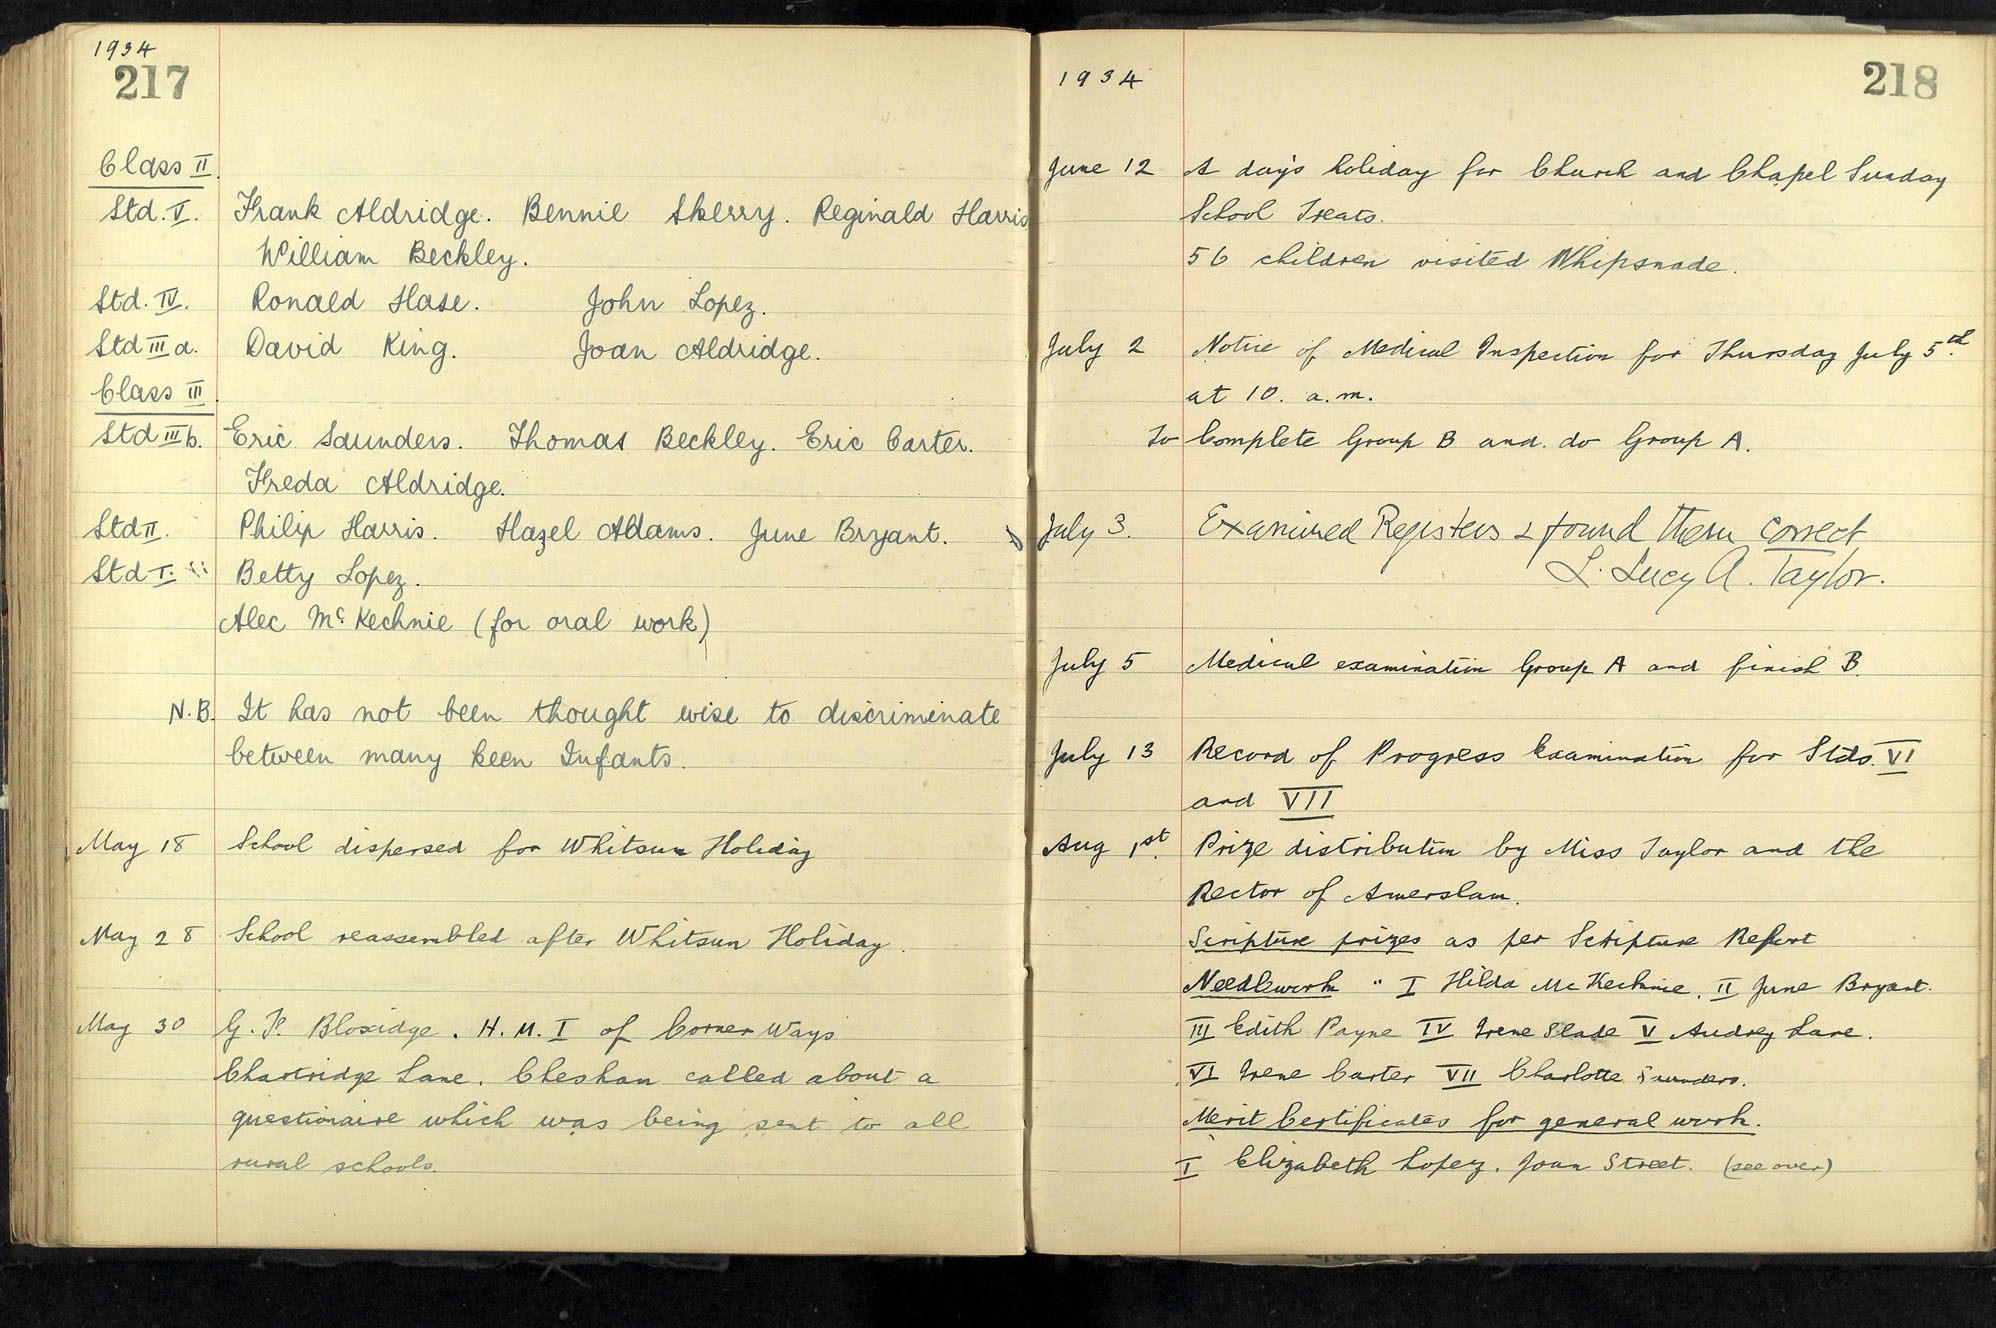 1934
217
Class II
Std. V. Frank Aldridge. Bennie Skerry. Reginald Harris
William Beckley.
Std. IV. Ronald Hase. John Lopez.
Std III a. David King. Joan Aldridge.
Class III
Std III b. Eric Saunders. Thomas Beckley. Eric Carter.
Freda Aldridge.
Std II. Philip Harris. Hazel Adams. June Bryant.
Std I. Betty Lopez.
Alec McKechnie (for oral work)
N.B. It has not been thought wise to discriminate
between many keen Infants.
May 18 School dispersed for Whitsun Holiday
May 28 School reassembled after Whitsun Holiday.
May 30 G. P. Bloxidge. H.M.I of Corner Ways
Chartridge Lane. Chesham called about a
questionaire which was being sent to all
rural schools.
1934
218
June 12 A day's holiday for Church and Chapel Sunday
School Treats.
56 children visited Whipsnade.
July 2 Notice of Medical Inspection for Thursday July 5th.
at 10. a.m.
To Complete Group B and do Group A.
July 3. Examined Registers & found them correct
L. Lucy A. Taylor.
July 5 Medical examination Group A and finish B.
July 13 Record of Progress Examination for Stds. VI
and VII
Aug 1st. Prize distribution by Miss Taylor and the
Rector of Amersham.
Scripture prizes as per Scripture Report
Needlework " I Hilda McKechnie. II June Bryant.
III Edith Payne IV Irene Slade V Audrey Lane.
VI Irene Carter VII Charlotte Saunders.
Merit Certificates for general work.
I Elizabeth Lopez. Joan Street. (see over)